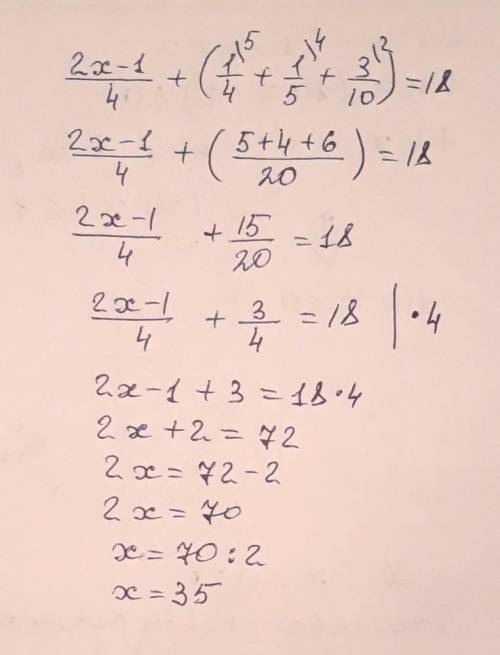 (2x-1)/4 + (1/4\5 + 1/5\4 + 3/10\2) = 18
(2x-1)/4 + ((5+4+6)/20) = 18
(2x-1)/4 + 15/20 = 18
(2x-1)/4 + 3/4 = 18 | ·4
2x-1+3=18·4
2x+2=72
2x=72-2
2x=70
x=70:2
x=35